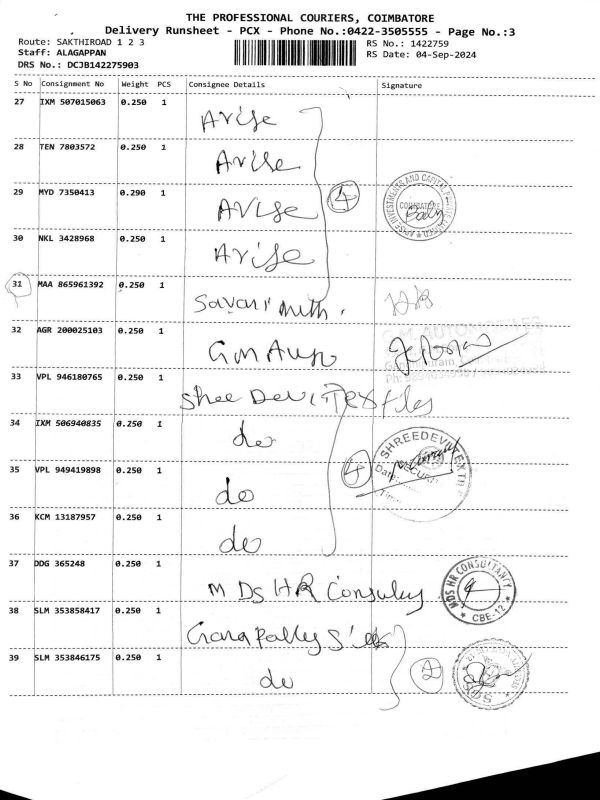 THE PROFESSIONAL COURIERS, COIMBATORE
Delivery Runsheet - PCX - Phone No.:0422-3505555 - Page No.:3
Route: SAKTHIROAD 1 2 3
RS No.: 1422759
Staff: ALAGAPPAN
RS Date: 04-Sep-2024
DRS No.: DCJB142275903
S No Consignment No Weight PCS Consignee Details Signature
27 IXM 507015063 0.250 1 Arise
28 TEN 7803572 0.250 1 Arise
29 MYD 7350413 0.290 1 Arise
4
ARISE INVESTMENTS AND CAPITAL PRIVATE LIMITED
COIMBATORE
30 NKL 3428968 0.250 1 Arise
31 MAA 865961392 0.250 1 Savari
32 AGR 200025103 0.250 1 GM Auto
G.M. AUTOMOTIVES
33 VPL 946180765 0.250 1 Shree Devi Textiles
34 IXM 506940835 0.250 1 do
35 VPL 949419898 0.250 1 do
4
SHREEDEVI TEXTILE
SECURITY
Date
Time
36 KCM 13187957 0.250 1 do
37 DDG 365248 0.250 1 MDS HR Consulcy
MDS HR CONSULTANCY
CBE-12
38 SLM 353858417 0.250 1 Ganapathy Silks
39 SLM 353846175 0.250 1 do
2